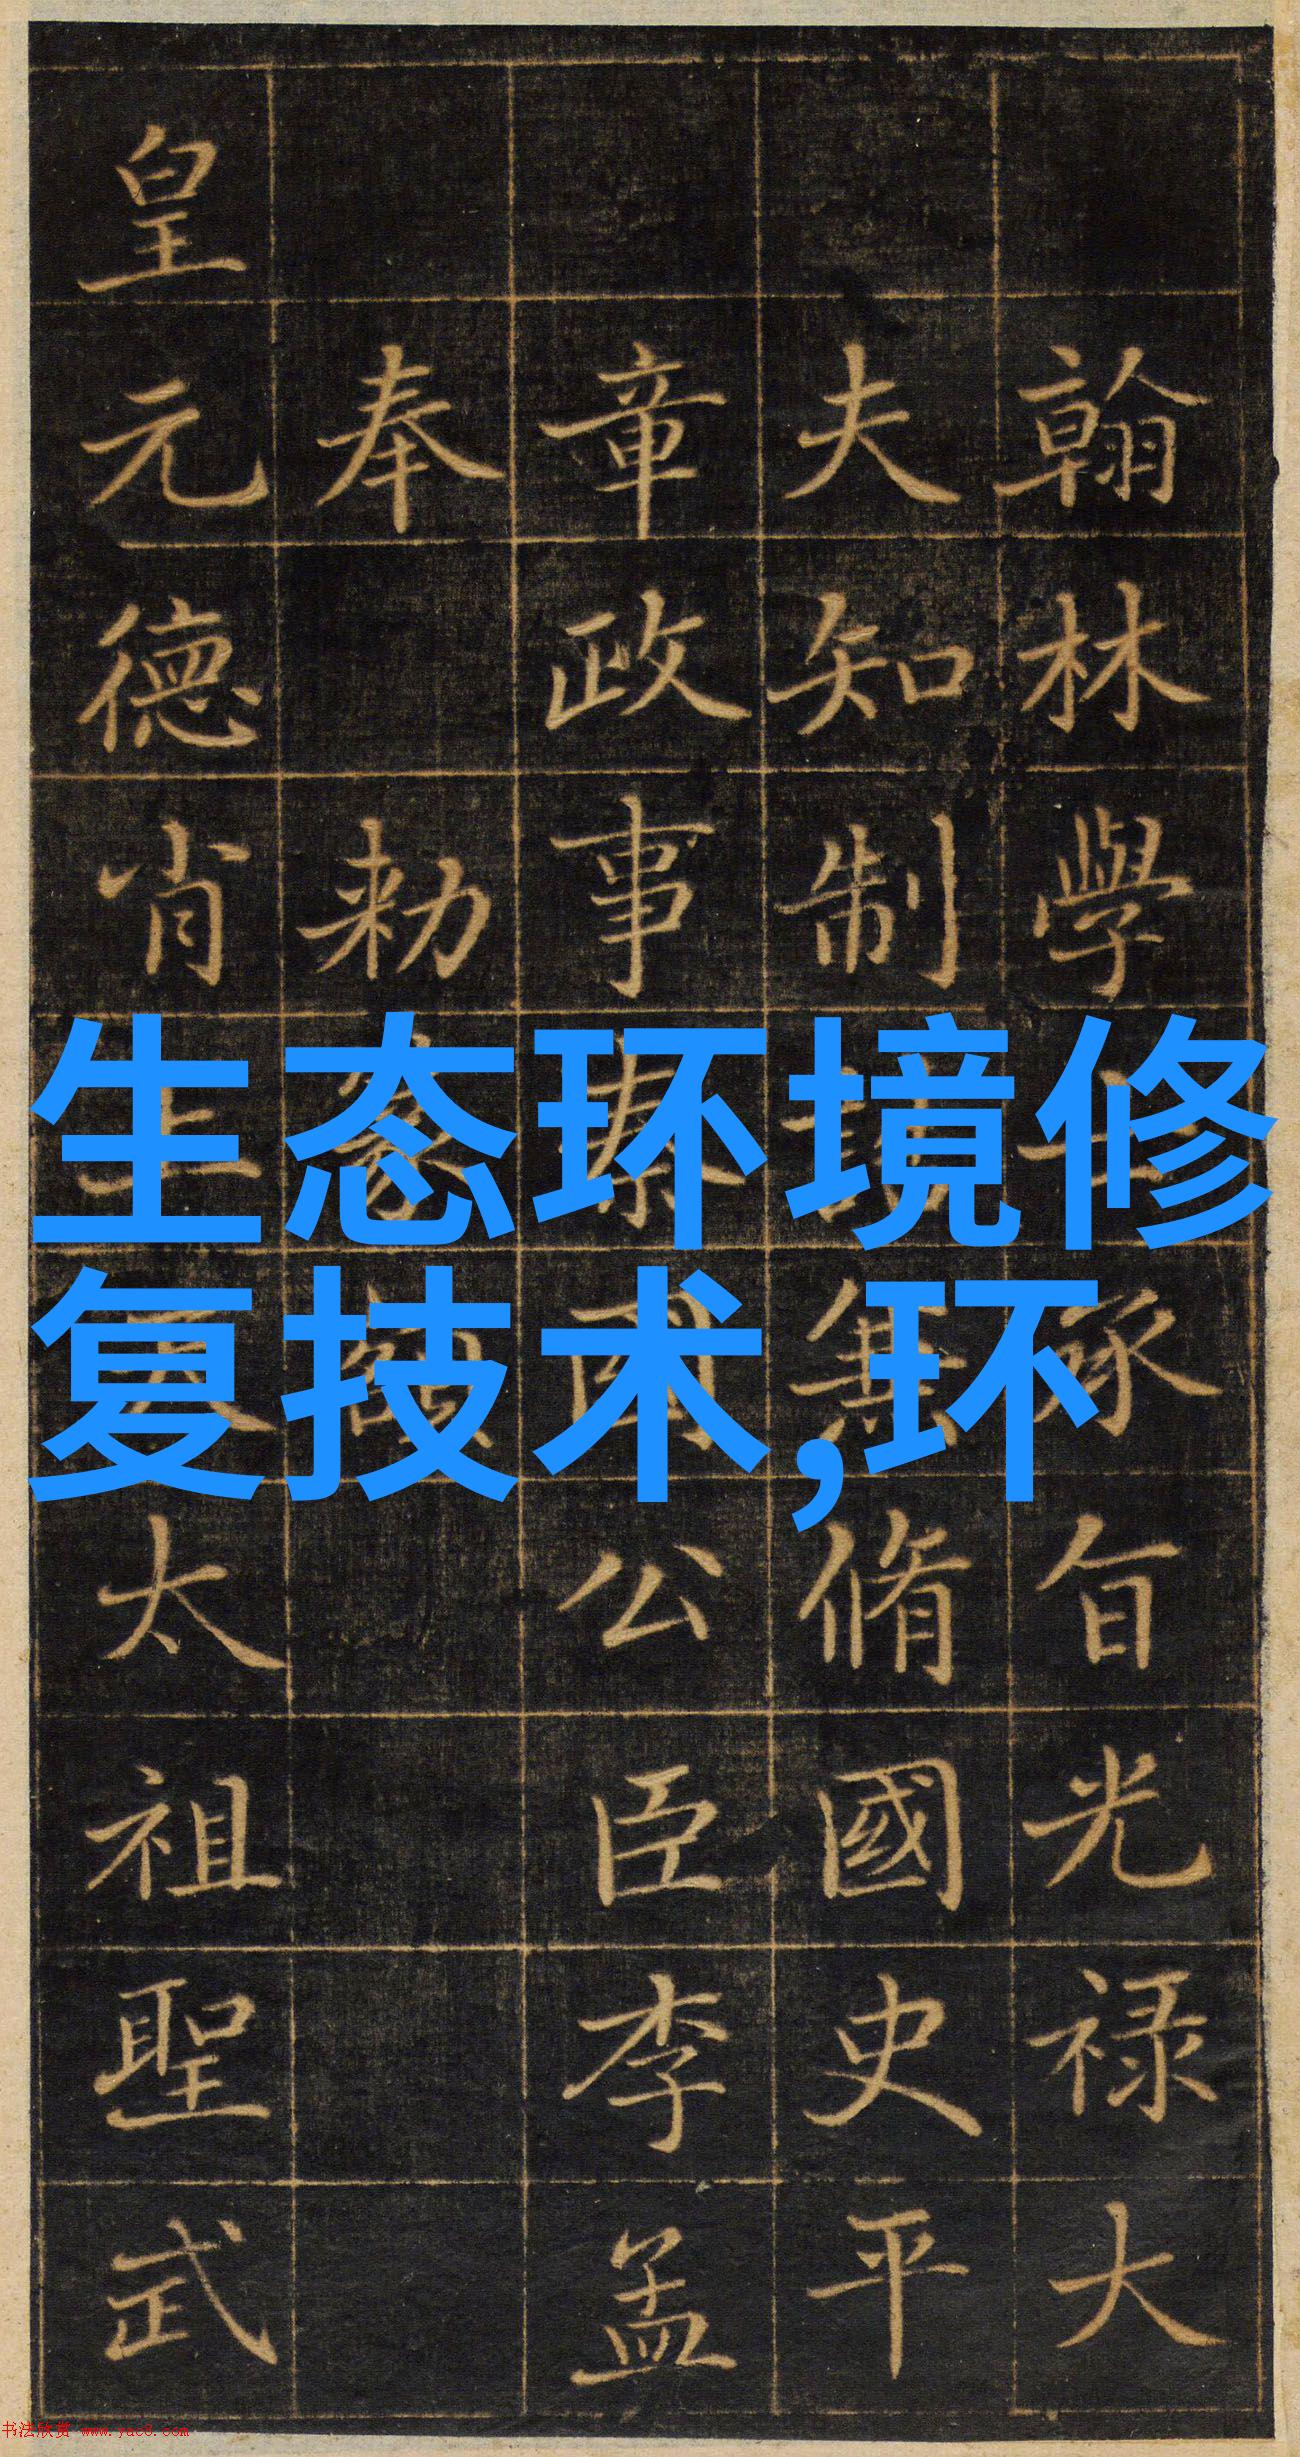 翰林學士承旨光禄大
夫知制誥兼脩國史平
章政事秦國公臣李孟
奉 勑篆額
皇元德肖上天太祖聖武
生态环境修
复技术,环
书法欣赏 www.yac8.com